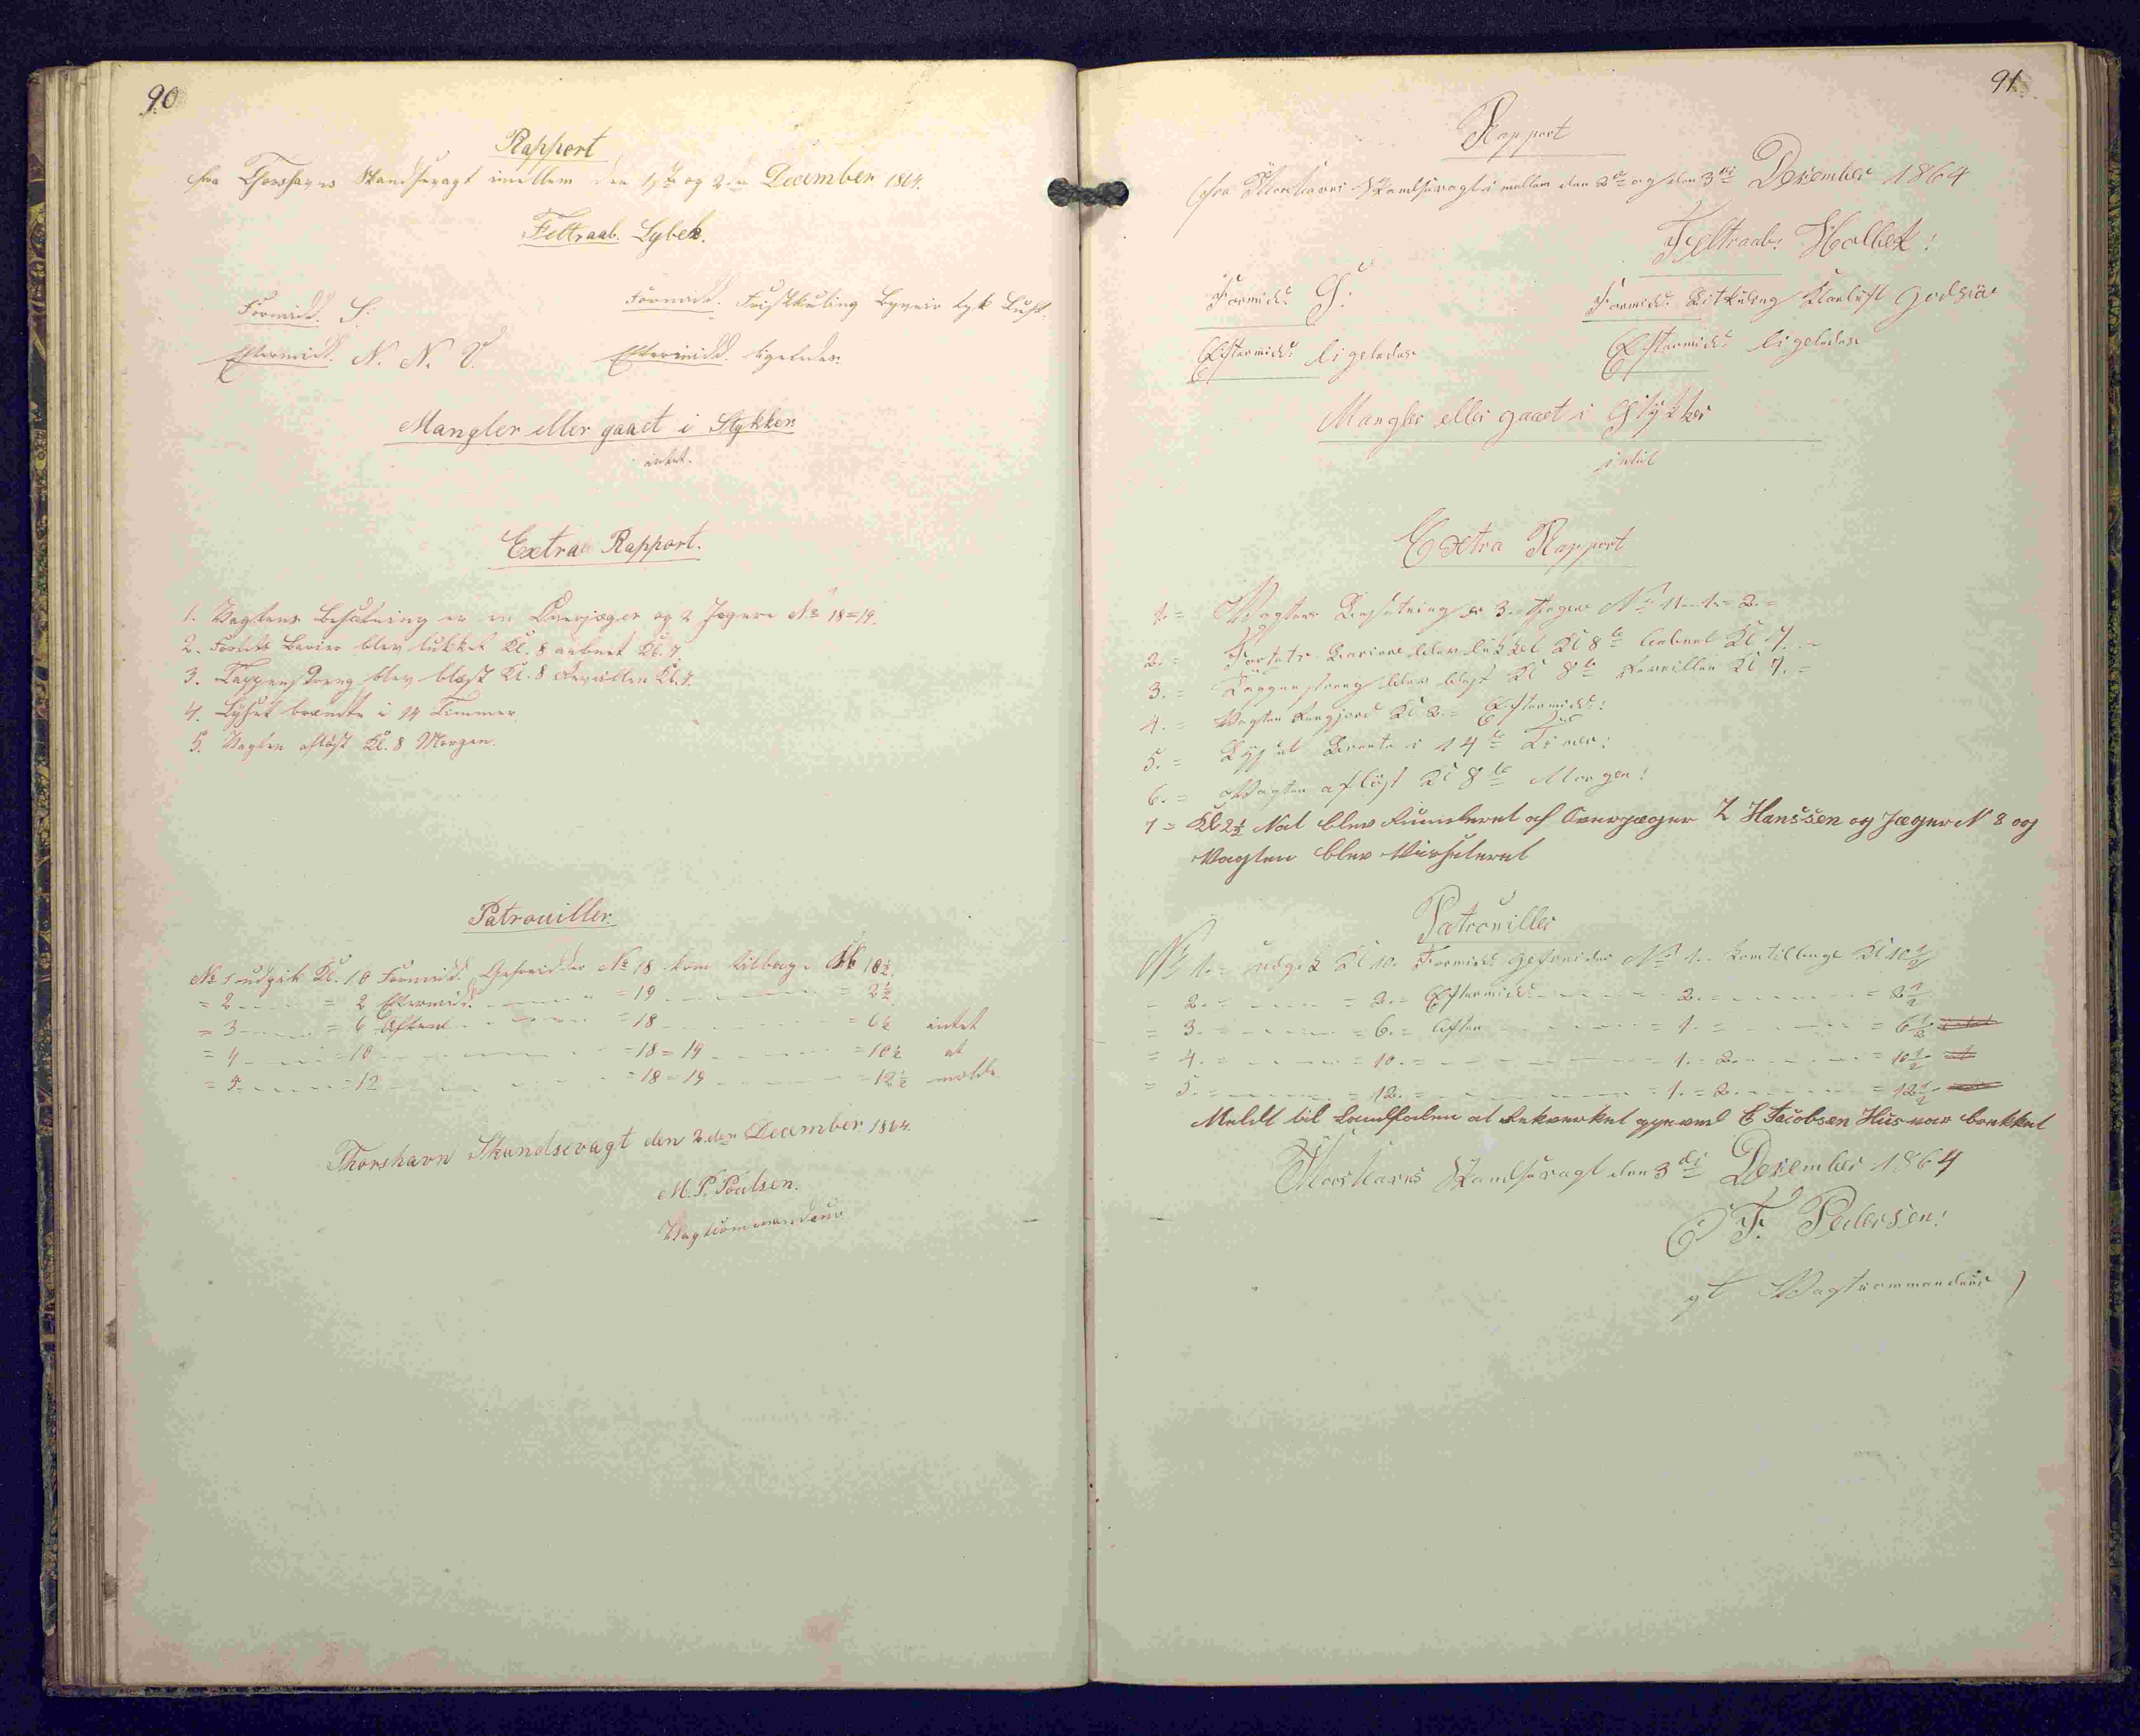 90
Rapport
fra Thorshavns Skandsevagt imellem den 1ste og 2den December 1864.
Feltraab. Lybek.
Formidd. S.
Formidd. Friskkuling Byveir tyk Luft.
Eftermidd. N. N. V.
Eftermidd. ligeledes.
Mangler eller gaaet i Stykker.
intet.
Extra Rapport.
1. Vagtens Besætning er en Overjæger og 2 Jægere No 18=19.
2. Fortets Barier blev lukket Kl. 8 aabnet Kl. 7.
3. Tappenstreng blev blæst Kl. 8 Reveillen Kl. 7.
4. Lyset brændte i 14 Timmer.
5. Vagten afløst Kl. 8 Morgen.
Patrouiller.
No 1 udgik Kl. 10 Formidd. Gefreider No 18 kom tilbage Kl 10½
= 2 = 2 Eftermidd. = 19 = 2½
= 3 = 6 Aften = 18 = 6½ intet
= 4 = 10 = 18 = 19 = 10½ at
= 5 = 12 = 18 = 19 = 12½ melde.
Thorshavn Skandsevagt den 2den December 1864.
M. P. Poulsen.
Vagtcommandeur
91.
Rapport
fra Thorshavns Skandsevagt i mellem den 2de og den 3die December 1864
Feltraab: Holbek!
Formidd: S:
Formidd: Bitkuling Klarluft
Eftermidd: ligeledes
Eftermidd: ligeledes
Mangler eller gaaet i Stykker
intet
Extra Rapport
1. = Vagtens Besætning er 3. Jæger No 11. 1. = 2. =
2. = Fortets Bariere blev lukket Kl 8te aabnet Kl 7. =
3. = Tappenstreng blev blest Kl 8te Reveillen Kl 7. =
4. = Vagten Rengjord Kl 2. = Eftermidd:!
5. = Lyset Brente i 14te Timer!
6. = Vagten afløst Kl 8te Morgen!
7 = Kl 2½ Nat blev Runderet af Overjæger Z Hanssen og Jæger N 8 og
Vagten blev Visiteret
Patrouiller
No 1. = udgik Kl 10. Formidd: gefreider No 1. kom tilbage Kl 10½
= 2. = = 2. = Eftermidd: = 2. = = 2½
= 3. = = 6. = Aften = 1. = = 6½ intet
= 4. = = 10. = = 1. = 2. = 10½ at
= 5. = = 12. = = 1. = 2. = 12½
Meldt til Landfoden at Rekverket ved C Jacobsen Hus var brekket
Thorshavns Skandsevagt den 3die December 1864
T. Pedersen!
Vagtcommandeur